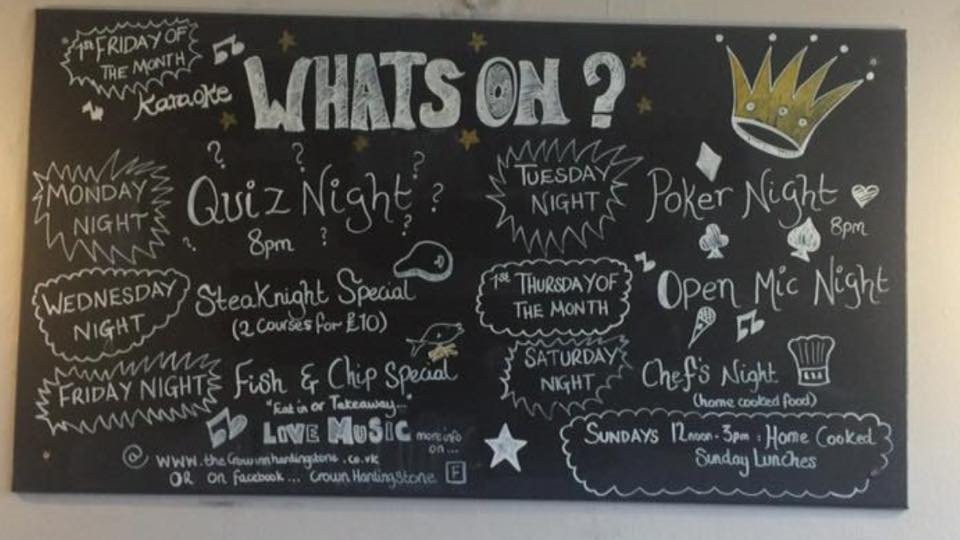 1st FRIDAY OF
THE MONTH
Karaoke
WHATS ON ?
MONDAY
NIGHT
Quiz Night
8pm
TUESDAY
NIGHT
Poker Night
8pm
WEDNESDAY
NIGHT
Steaknight Special
(2 courses for £10)
1st THURSDAY OF
THE MONTH
Open Mic Night
FRIDAY NIGHT
Fish & Chip Special
"Eat in or Takeaway..."
SATURDAY
NIGHT
Chef's Night
(home cooked food)
LIVE MUSIC more info
on...
@ WWW.theCrowninnhardingstone.co.uk
OR on facebook... Crown Hardingstone F
SUNDAYS 12noon-3pm: Home Cooked
Sunday Lunches